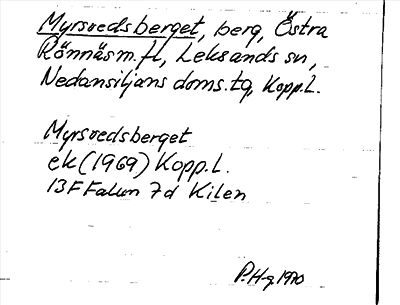 Myrsvedsberget, berg, Östra
Rönnäs m. fl, Leksands sn,
Nedansiljans doms. tg, Kopp.L.
Myrsvedsberget
ek (1969) Kopp.L.
13F Falun 7d Kilen
P.H-g.1970